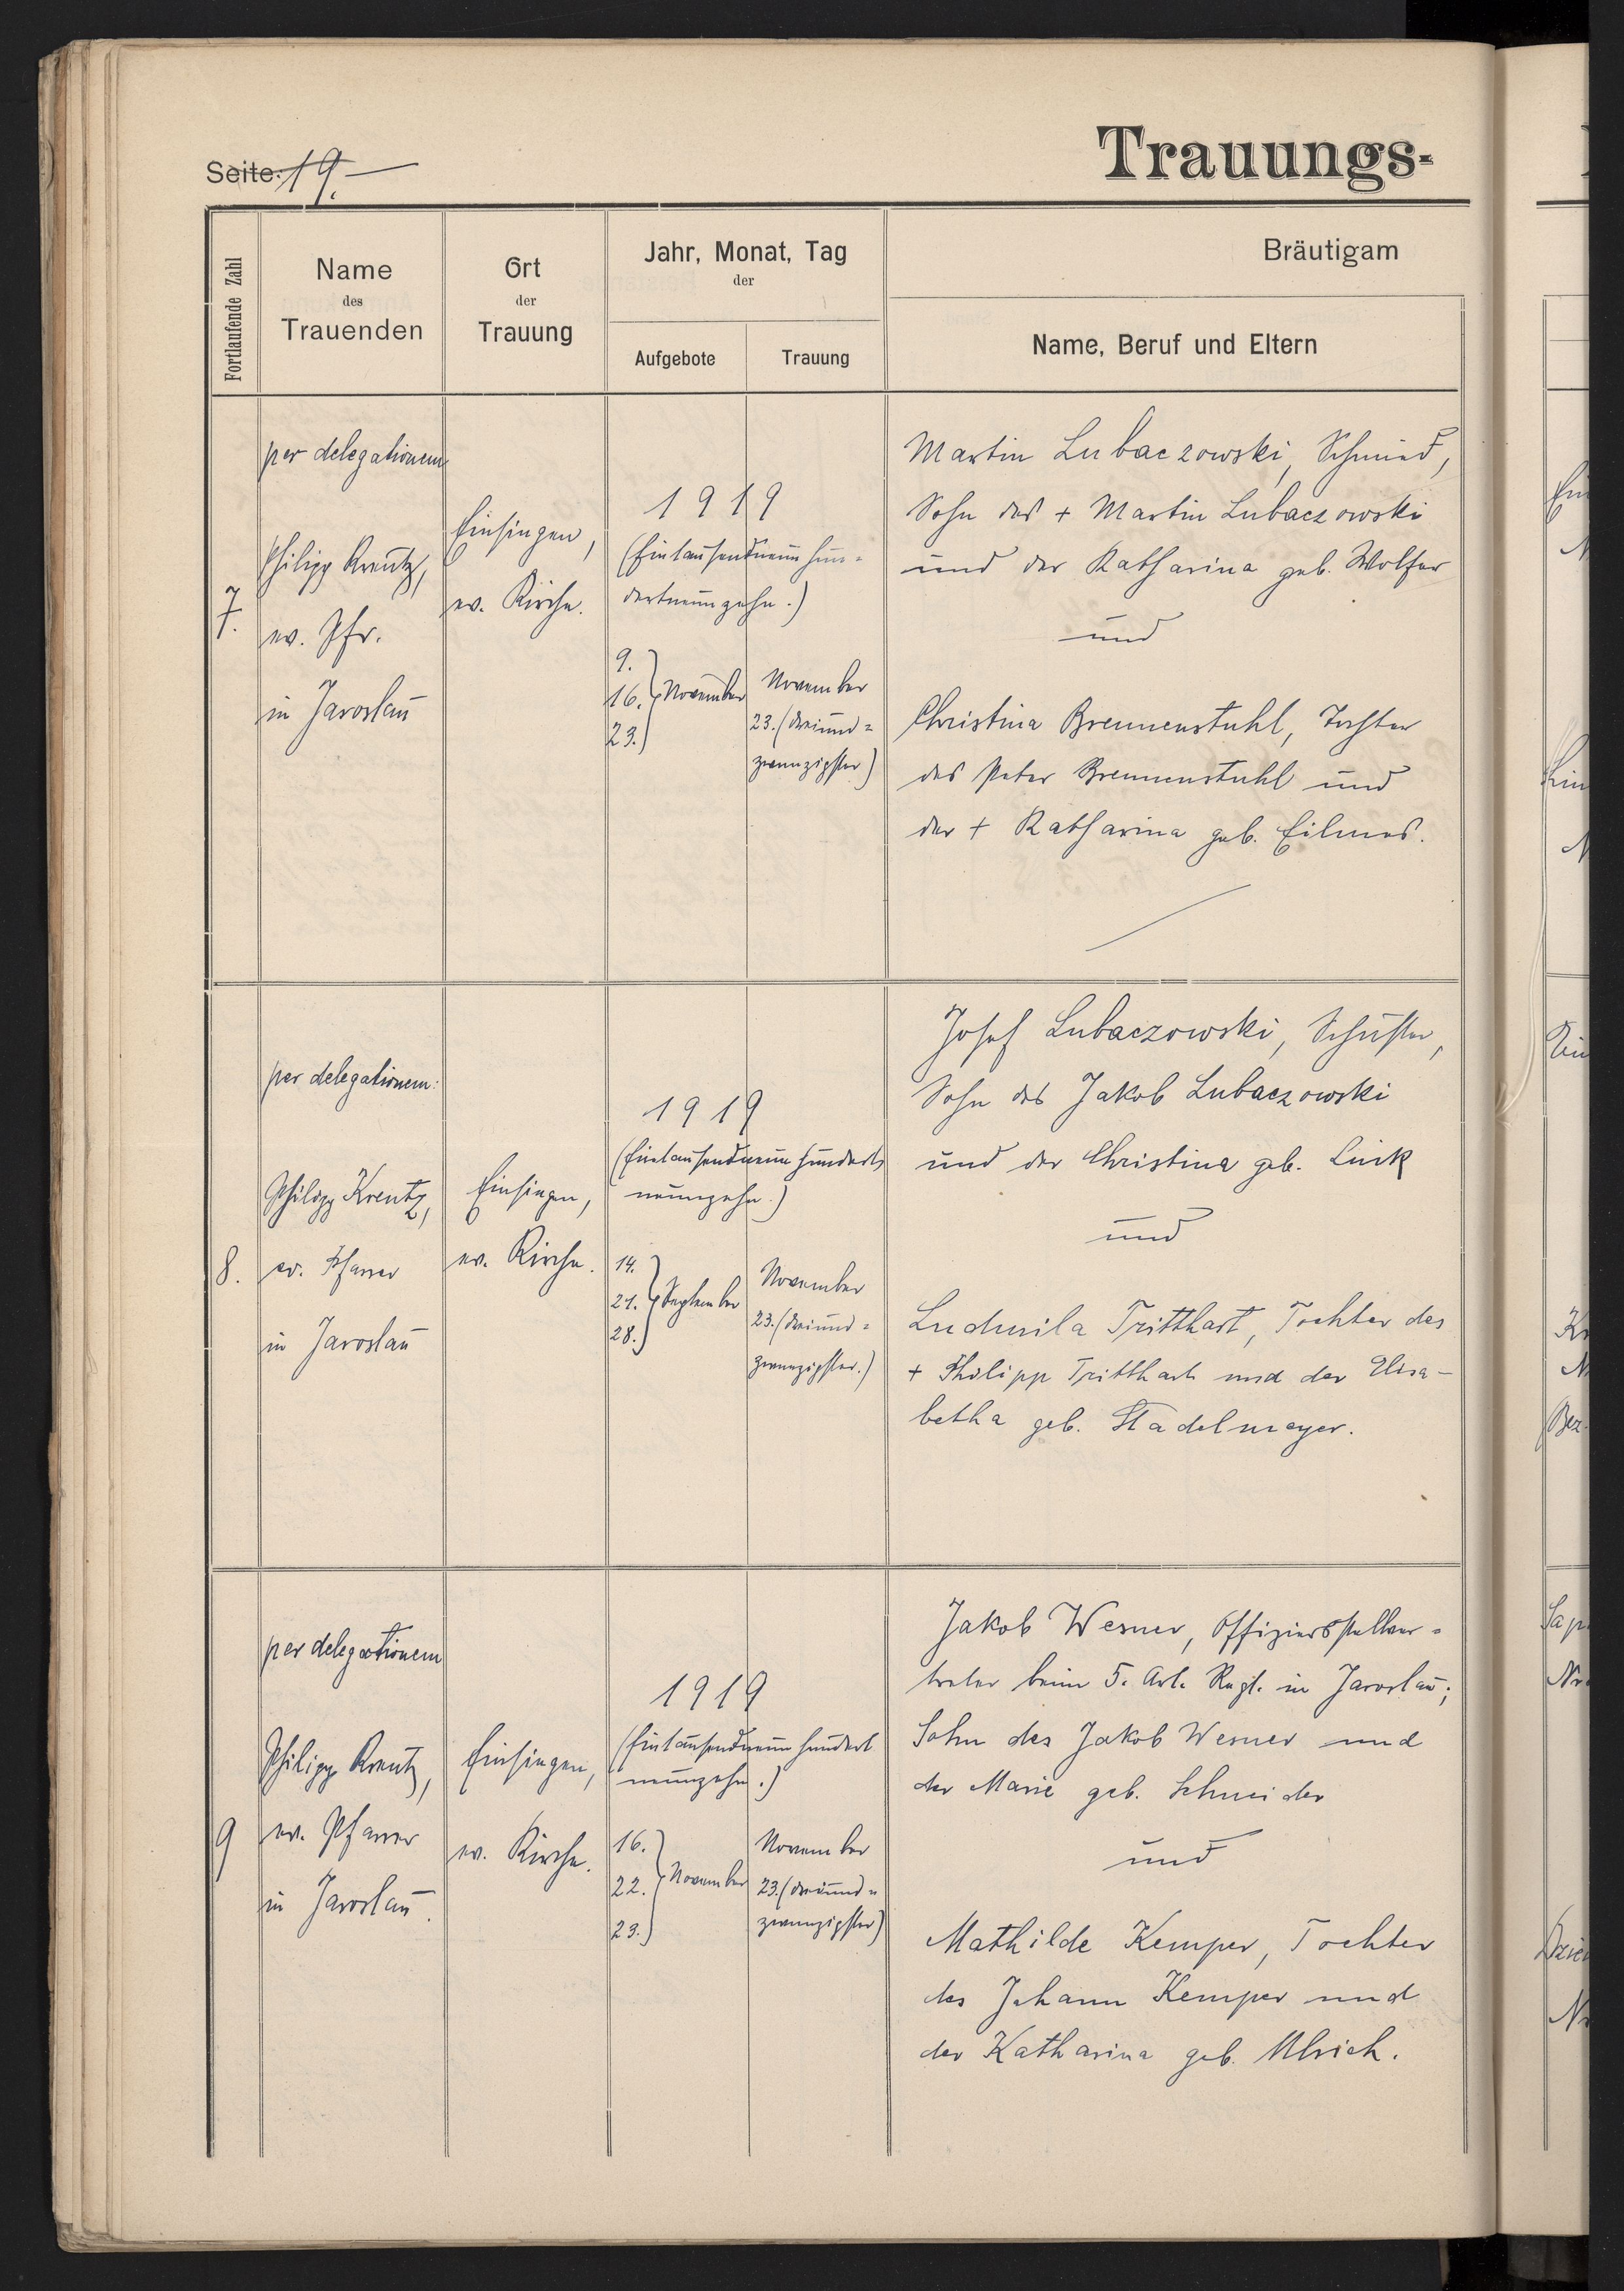 Seite 19.
Trauungs-
Fortlaufende Zahl
Name
des
Trauenden
Ort
der
Trauung
Jahr, Monat, Tag
der
Aufgebote
Trauung
Bräutigam
Name, Beruf und Eltern
7.
per delegationem
Philipp Kreutz,
ev. Pfr.
in Jaroslau
Einsingen,
ev. Kirche.
1919
(Eintausendneunhun-
dertneunzehn.)
9.
16. November
23.
November
23. (dreiund=
zwanzigster)
Martin Lubaczowski, Schmied,
Sohn des + Martin Lubaczowski
und der Katharina geb. Wolfer
und
Christina Brennenstuhl, Tochter
des Peter Brennenstuhl und
der + Katharina geb. Eilmes.
8.
per delegationem:
Philipp Kreutz,
ev. Pfarrer
in Jaroslau
Einsingen,
ev. Kirche.
1919
(Eintausendneunhundert
neunzehn.)
14.
21. September
28.
November
23. (dreiund=
zwanzigster.)
Josef Lubaczowski, Schuster,
Sohn des Jakob Lubaczowski
und der Christina geb. Link
und
Ludmila Tritthart, Tochter des
+ Philipp Tritthart und der Elisa-
betha geb. Stadelmeyer.
9
per delegationem
Philipp Kreutz,
ev. Pfarrer
in Jaroslau.
Einsingen,
ev. Kirche.
1919
(Eintausendneunhundert
neunzehn.)
16.
22. November
23.
November
23. (dreiund=
zwanzigster)
Jakob Wesner, Offiziersstellver=
treter beim 5. Art. Regt. in Jaroslau;
Sohn des Jakob Wesner und
der Marie geb. Schneider
und
Mathilde Kemper, Tochter
des Johann Kemper und
der Katharina geb. Ulrich.